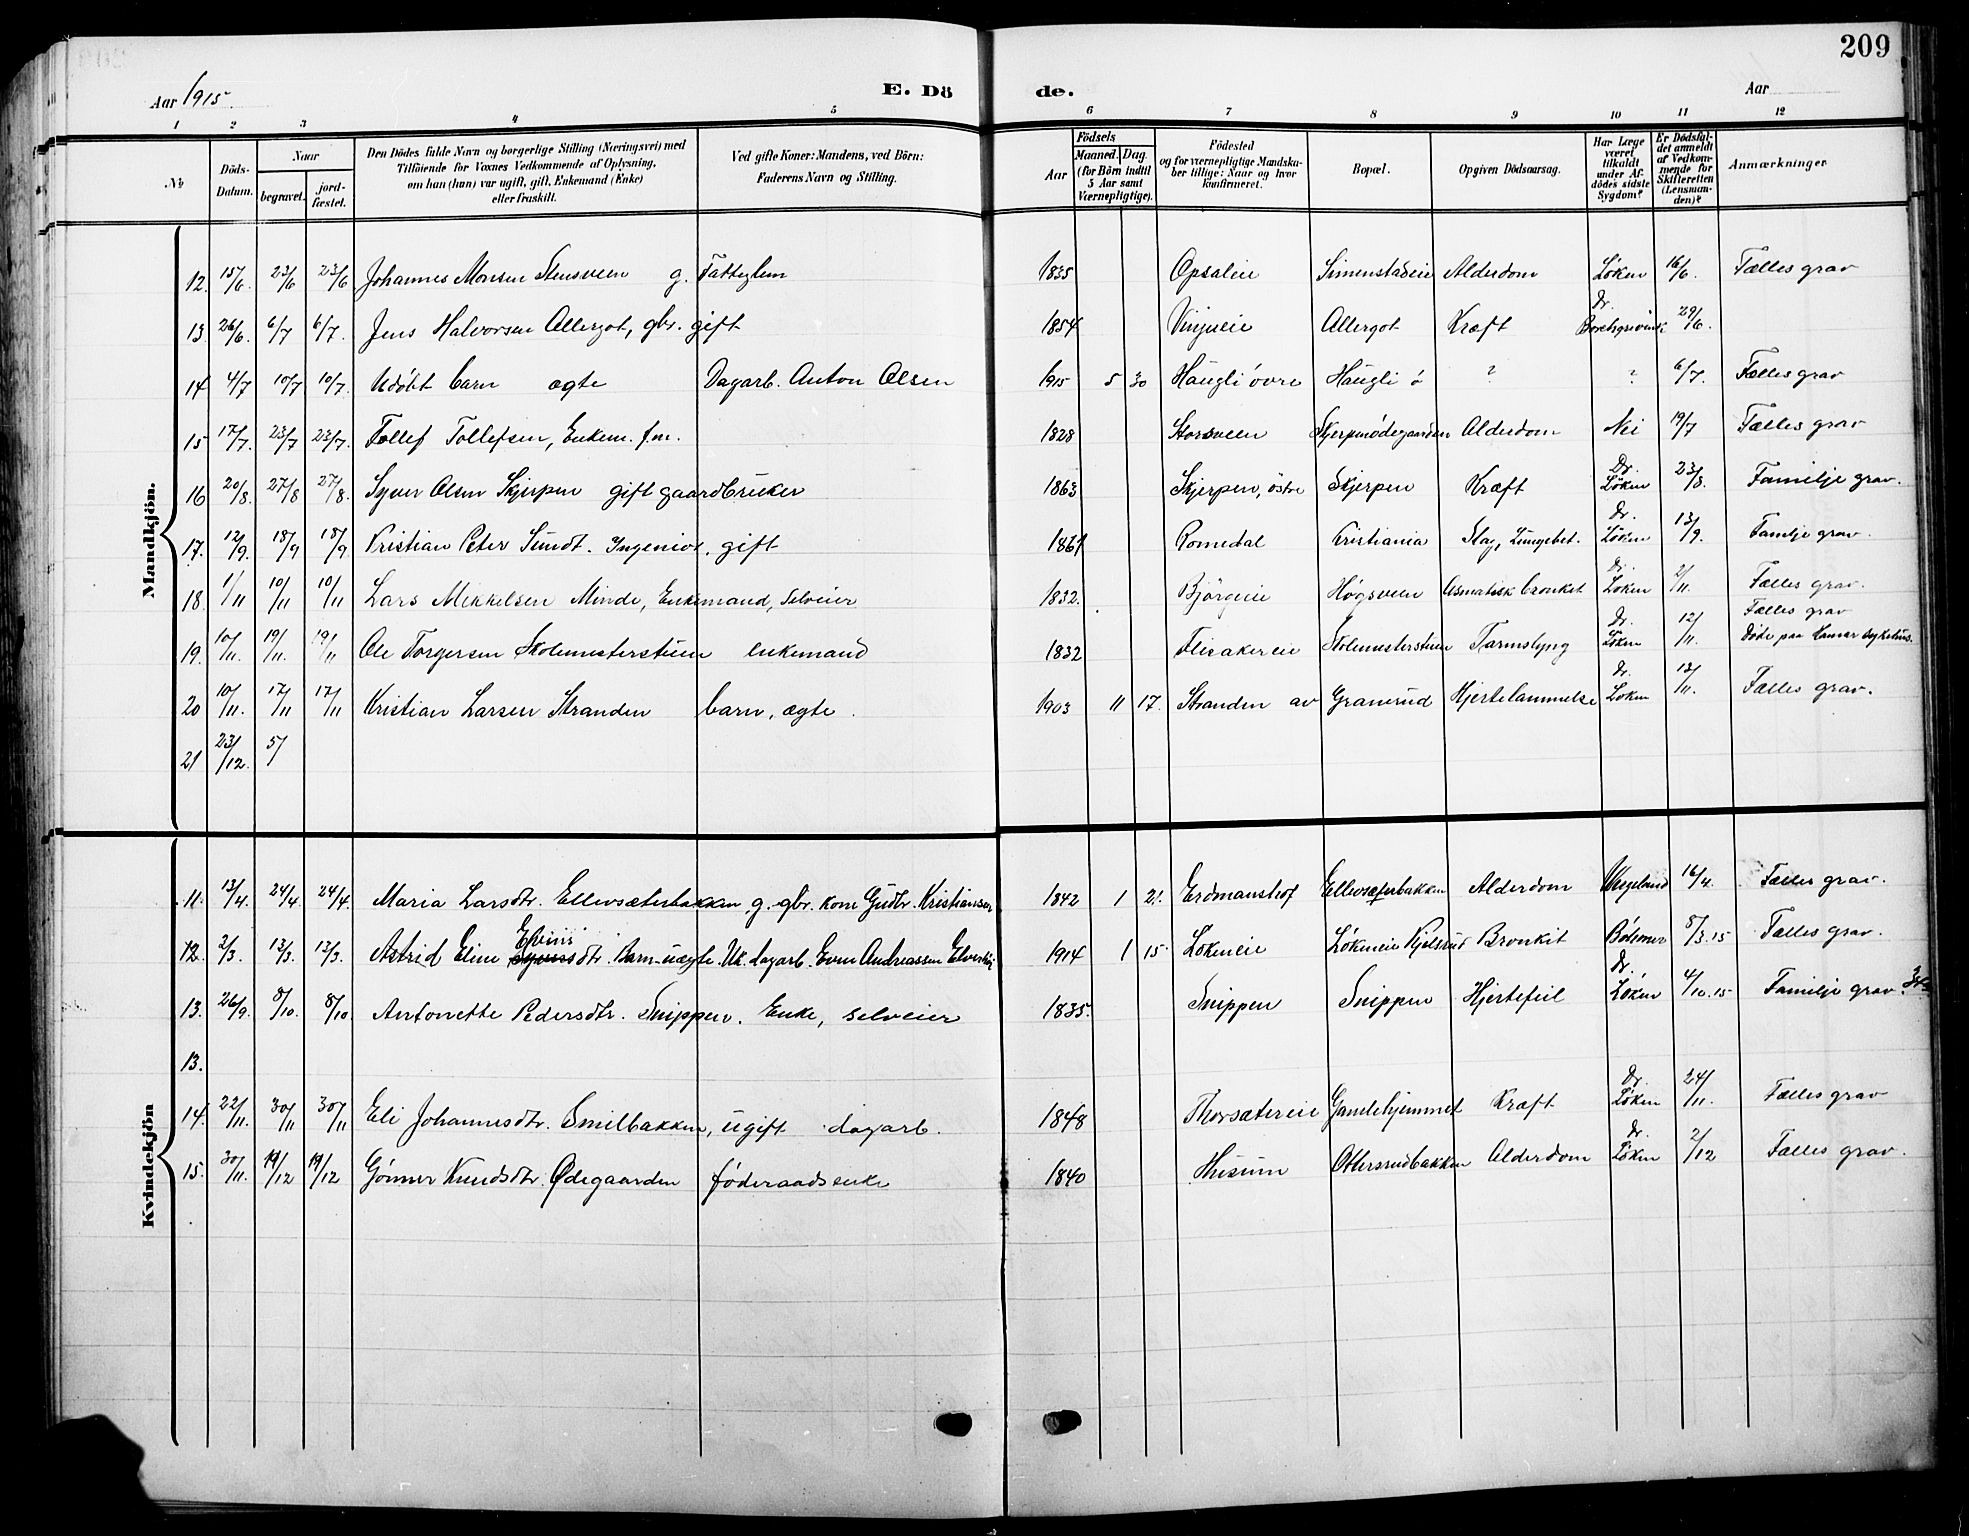 209
Aar 1915.
E. Dö de.
Aar
1 2 3 4 5 6 7 8 9 10 11 12
No
Döds-Datum.
Naar begravet. jord-fæstet.
Den Dödes fulde Navn og borgerlige Stilling (Næringsvei) med Tilföiende for Voxnes Vedkommende af Oplysning, om han (hun) var ugift, gift, Enkemand (Enke) eller fraskilt.
Ved gifte Koner: Mandens, ved Börn: Faderens Navn og Stilling.
Födsels Aar Maaned. Dag. (for Börn indtil 5 Aar samt Værnepligtige).
Födested og for værnepligtige Mandskaber tillige: Naar og hvor konfirmeret.
Bopæl.
Opgiven Dödsaarsag.
Har Læge været tilkaldt under Afdödes sidste Sygdom?
Er Dödsfaldet anmeldt af Vedkommende for Skifteretten (Lensmanden)?
Anmærkninger
Mandkjön.
12. 15/6 23/6 23/6 Johannes Monsen Stensveen g. Fattiglem 1835 Opsaleie Simenstadeie Alderdom Løken 16/6. Fælles grav
13. 26/6. 6/7 6/7. Jens Halvorsen Allergot, gbr. gift 1854 Vinjueie Allergot Kræft Dr. Borchgrevink 29/6.
14 4/7 10/7 10/7. Udøbt barn ægte Dagarb. Anton Olsen 1915 5 30 Haugli øvre Haugli ø ? ? 6/7. Fælles grav
15 17/7. 23/7 23/7. Tollef Tollefsen, Enkem. f.m. 1828 Storsveen Skjerpenødegaarden Alderdom Nei 19/7 Fælles grav
16 20/8. 27/8 27/8. Syver Olsen Skjerpen gift gaardbruker 1863 Skjerpen, østre Skjerpen Kræft Dr. Løken 23/8. Familje grav.
17. 12/9. 18/9 18/9. Kristian Peter Sundt. Ingeniør, gift 1867 Romedal Kristiania Slag, Lungebet. Dr. Løken 13/9. Familje grav.
18. 1/11 10/11 10/11 Lars Mikkelsen Minde, Enkemand, Selveier 1832. Bjørgeie Høgsveen Asmatisk bronket Dr. Løken 2/11. Fælles grav.
19. 10/11. 19/11. 19/11 Ole Torgersen Skolemesterstuen enkemand 1832 Flisakereie Skolemesterstuen Tarmslyng Dr. Løken 12/11. Fælles grav Døde paa Hamar sykehus.
20 10/11. 17/11 17/11 Kristian Larsen Stranden barn, ægte. 1903 11 17. Stranden av Granerud Hjertelammelse Dr. Løken 12/11. Fælles grav.
21 23/12. 5/
Kvindekjön
11. 13/4. 24/4. 24/4. Maria Larsdtr. Ellevsæterbakken, g. gbr. kone Gudbr. Kristiansen 1842 1 21. Erdmanshof Ellevsæterbakken Alderdom Wegeland 16/4. Fælles grav.
12. 2/3. 13/3. 13/3. Astrid Eline Evensdtr. Barn uægte. Uk. dagarb. Even Andreassen 1914 1 15. Løkeneie Løkeneie Kjelsrud Bronkit Bøhmer 8/3.15 Fælles grav.
13. 26/9. 8/10. 8/10 Antonette Pedersdtr. Snippen. Enke, selveier 1835. Snippen Snippen Hjertefeil Dr. Løken 4/10.15 Familje grav.
13.
14. 22/11. 30/11 30/11 Eli Johannesdtr. Smilbakken, ugift dagarb. 1848 Thorsætereie Gamlehjemmet Kræft Dr. Løken 24/11. Fælles grav
15. 30/11. 19/12 19/12 Gønner Knudsdtr. Ødegaarden føderaadsenke 1840 Husum Ottersrudbakken Alderdom Dr. Løken 2/12 Fælles grav.